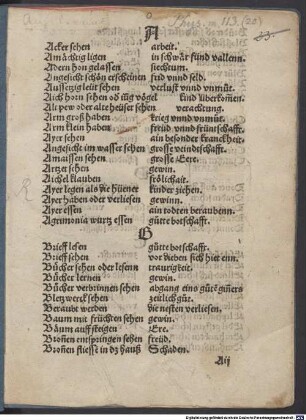 A
Acker sehen arbeit.
Amächtig ligen in schwär sünd vallenn.
Adern hon gelassen siechtum.
Angesicht schön erscheinen frid vnnd seld.
Aussetzig leit sehen verlust vnnd vnmüt.
Aich horn sehen od iüg vögel kind überkomen.
Alt pew oder alt heüser sehen verachtung.
Arm groß haben krieg vnnd vnmüt.
Arm klein haben freüd vnnd fründschafft.
Ayer sehen ain besonder kranckheit
Angesicht im wasser sehen grosse veindtschafft.
Amaissen sehen grosse Eere.
Artzet sehen gewin.
Aichel klauben frölichait.
Ayer legen als die hüener kinder ziehen.
Ayer haben oder verliesen gewinn.
Ayer essen ain todten beraubenn.
Agrimonia wurtz essen gütte botschafft.
B
Brieff lesen gütte botschafft.
Brieff sehen vor dieben sich hiet einn.
Bücher sehen oder lesenn traurigkeit.
Bücher lernen gewin.
Bücher verbrinnen sehen abgang eins gütē günners
Bletzwerck sehen zeitlich güt.
Beraubt werden die nesten verliesen.
Baum mit früchten sehen gewin.
Bäum auffsteigen Ere.
Bronen entspringen sehen freüd.
Bronen fliesst in dz hauß Schaden.
Aij